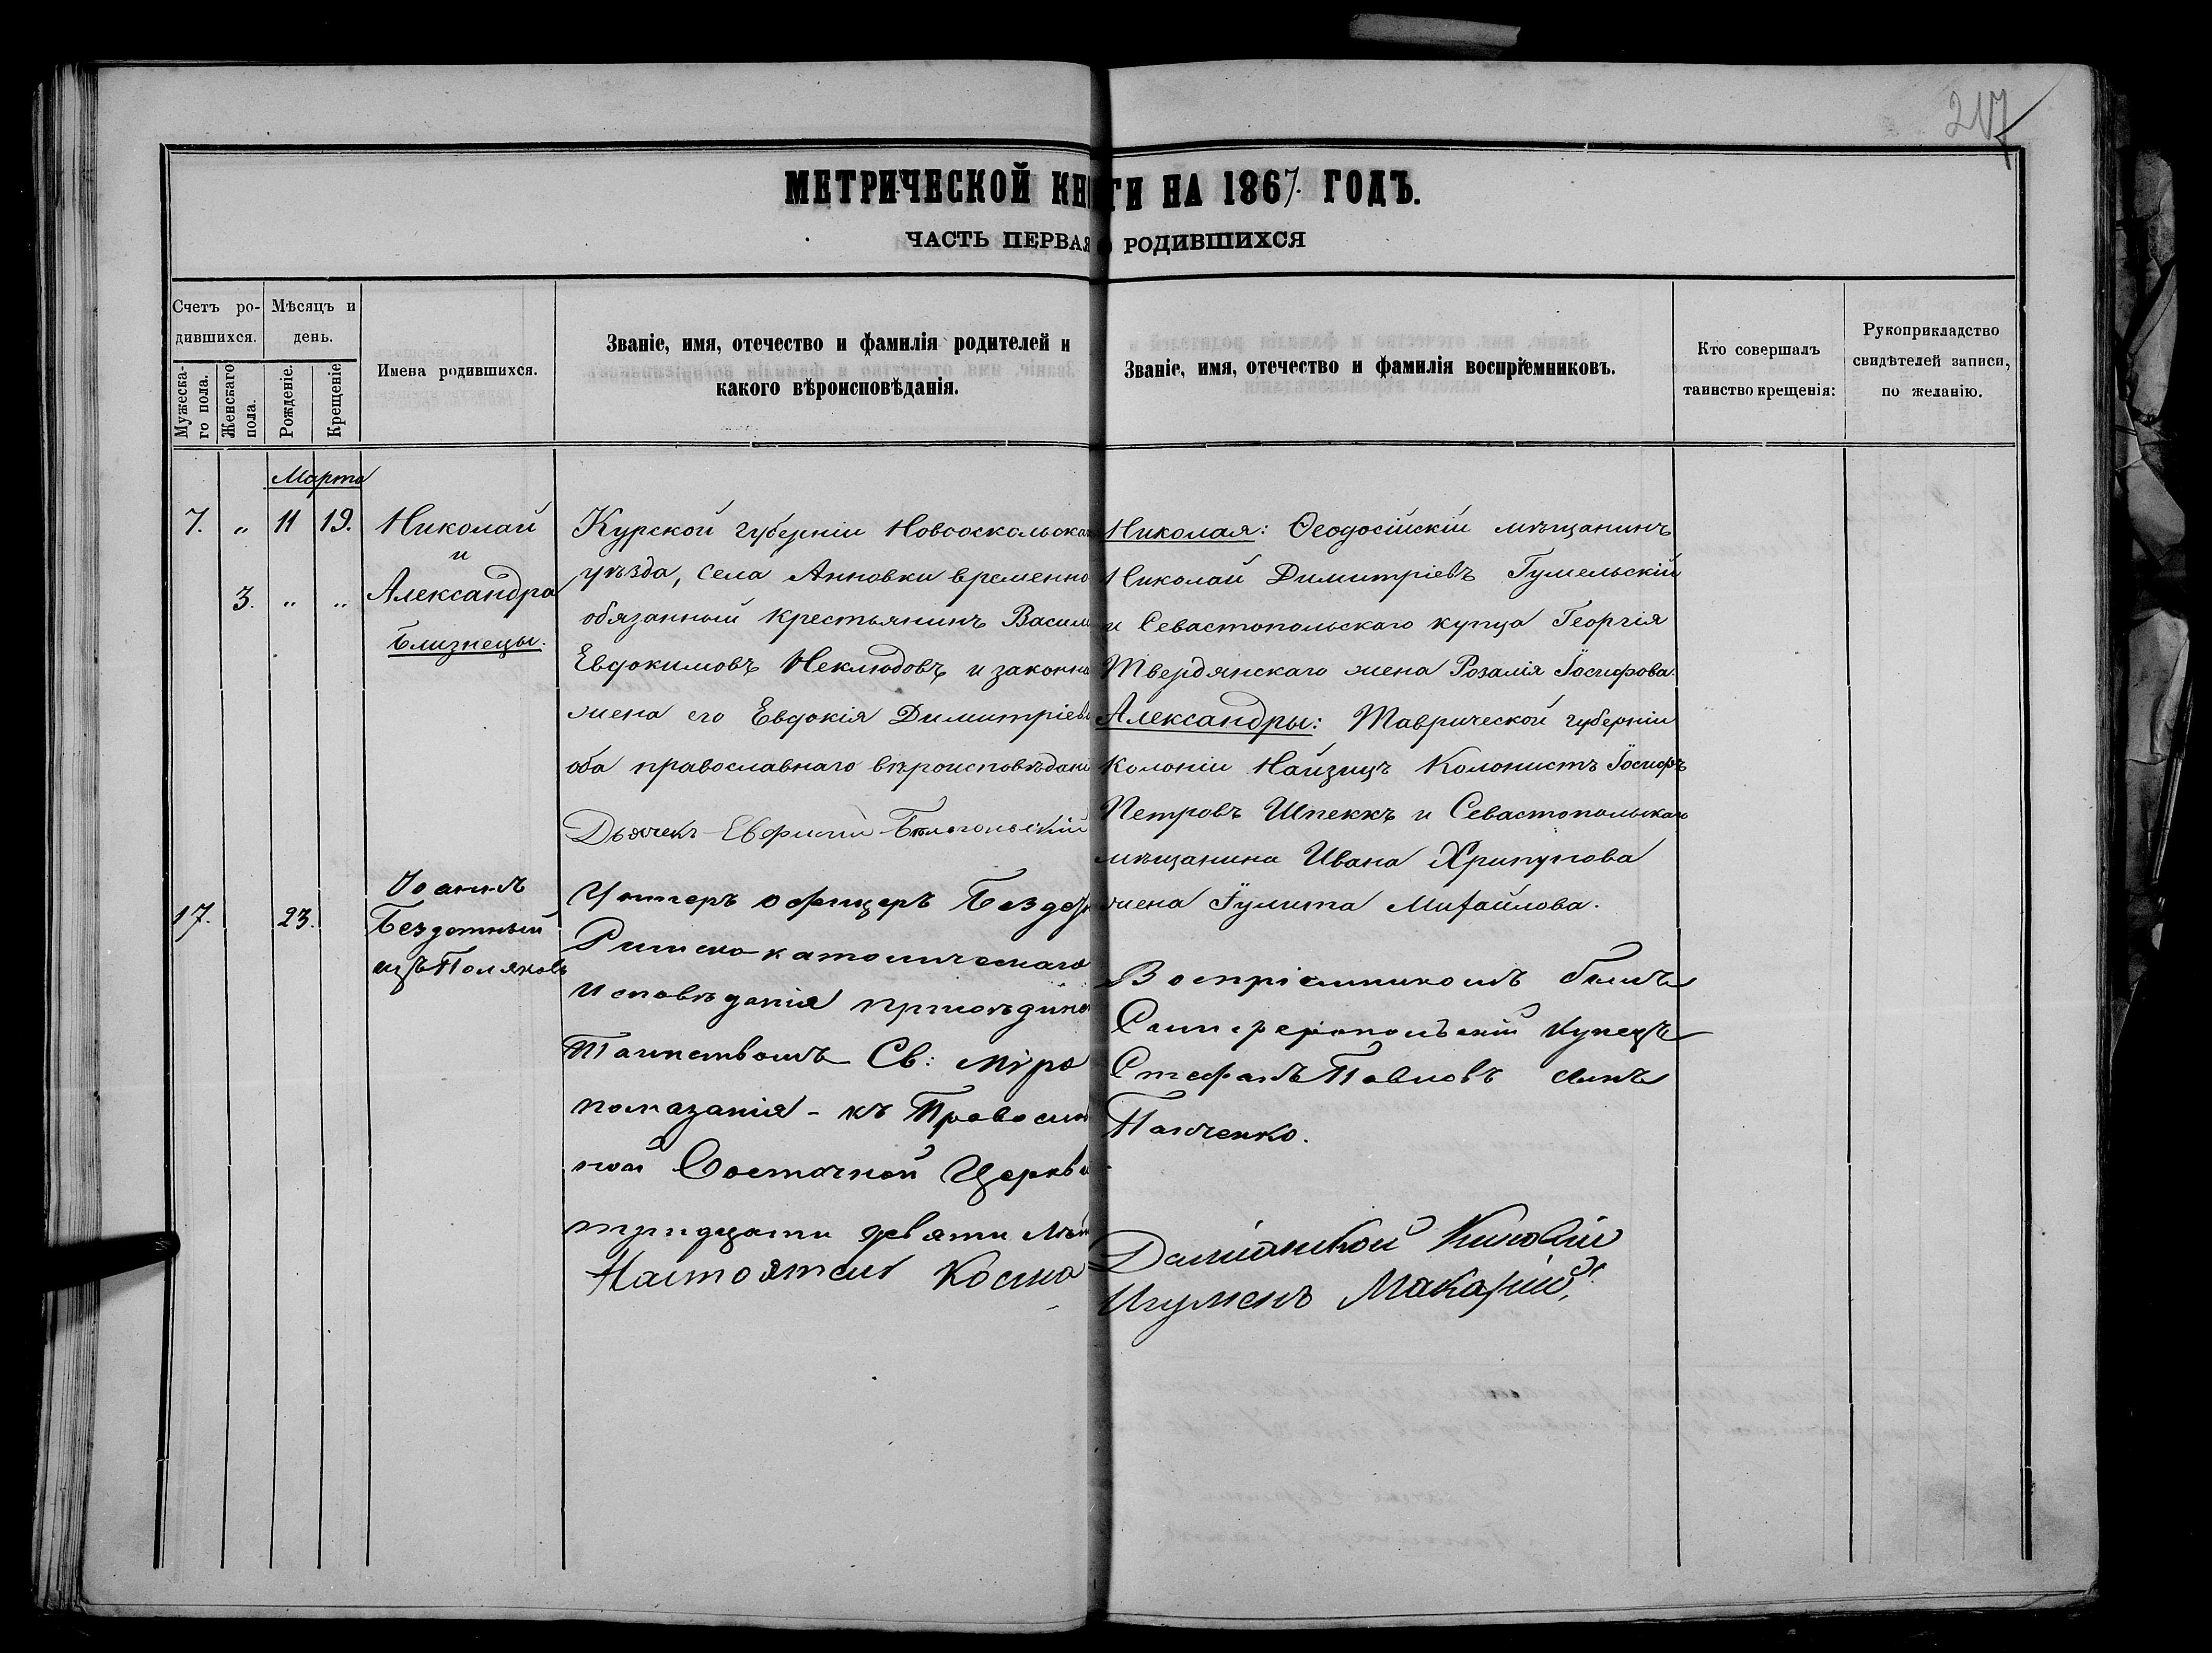 217
МЕТРИЧЕСКОЙ КНИГИ НА 1867 ГОДЪ.
ЧАСТЬ ПЕРВАЯ О РОДИВШИХСЯ
Счетъ ро-
дившихся.
Мужеска-
го пола.
Женскаго
пола.
Мѣсяцъ и
день.
Рожденіе.
Крещеніе
Имена родившихся.
Званіе, имя, отечество и фамилія родителей и
какого вѣроисповѣданія.
Званіе, имя, отечество и фамилія воспріемниковъ.
Кто совершалъ
таинство крещенія:
Рукоприкладство
свидѣтелей записи,
по желанію.
Марта
7. „ 11 19.
3. „ „
Николай
и
Александра
близнецы.
Курской губерніи Новооскольска
уѣзда, села Анновки временно
обязанный крестьянинъ Васил
Евдокимовъ Неклюдовъ и законна
жена его Евдокія Димитріев
оба православнаго вѣроисповѣдані
Дьячекъ Евфимій
Николая: Ѳеодосійскій мѣщанинъ
Николай Димитріевъ Гумельскій
и Севастопольскаго купца Георгія
Твердянскаго жена Розалія Іосифова.
Александры: Таврической губерніи
Колоніи Найзицъ Колонистъ Іосифъ
Петровъ Шпеккъ и Севастопольскаго
мѣщанина Ивана Хрипунова
жена Іулита Михайлова.
17. 23.
Іоаннъ
Бездетный
изъ Поляковъ
Унтеръ офицеръ Безде
Римско католическаго
исповѣданія присоедине
Таинствомъ Св: мѵро
помазанія - къ Правосла
ной Восточной Церкви
тридцати девяти лѣт
Воспріемникомъ былъ
Симферопольскій Купецъ
Стефанъ Павловъ сынъ
Панченко.
Настоятель Космо
Даміанской Киновіи
Игуменъ Макарій.